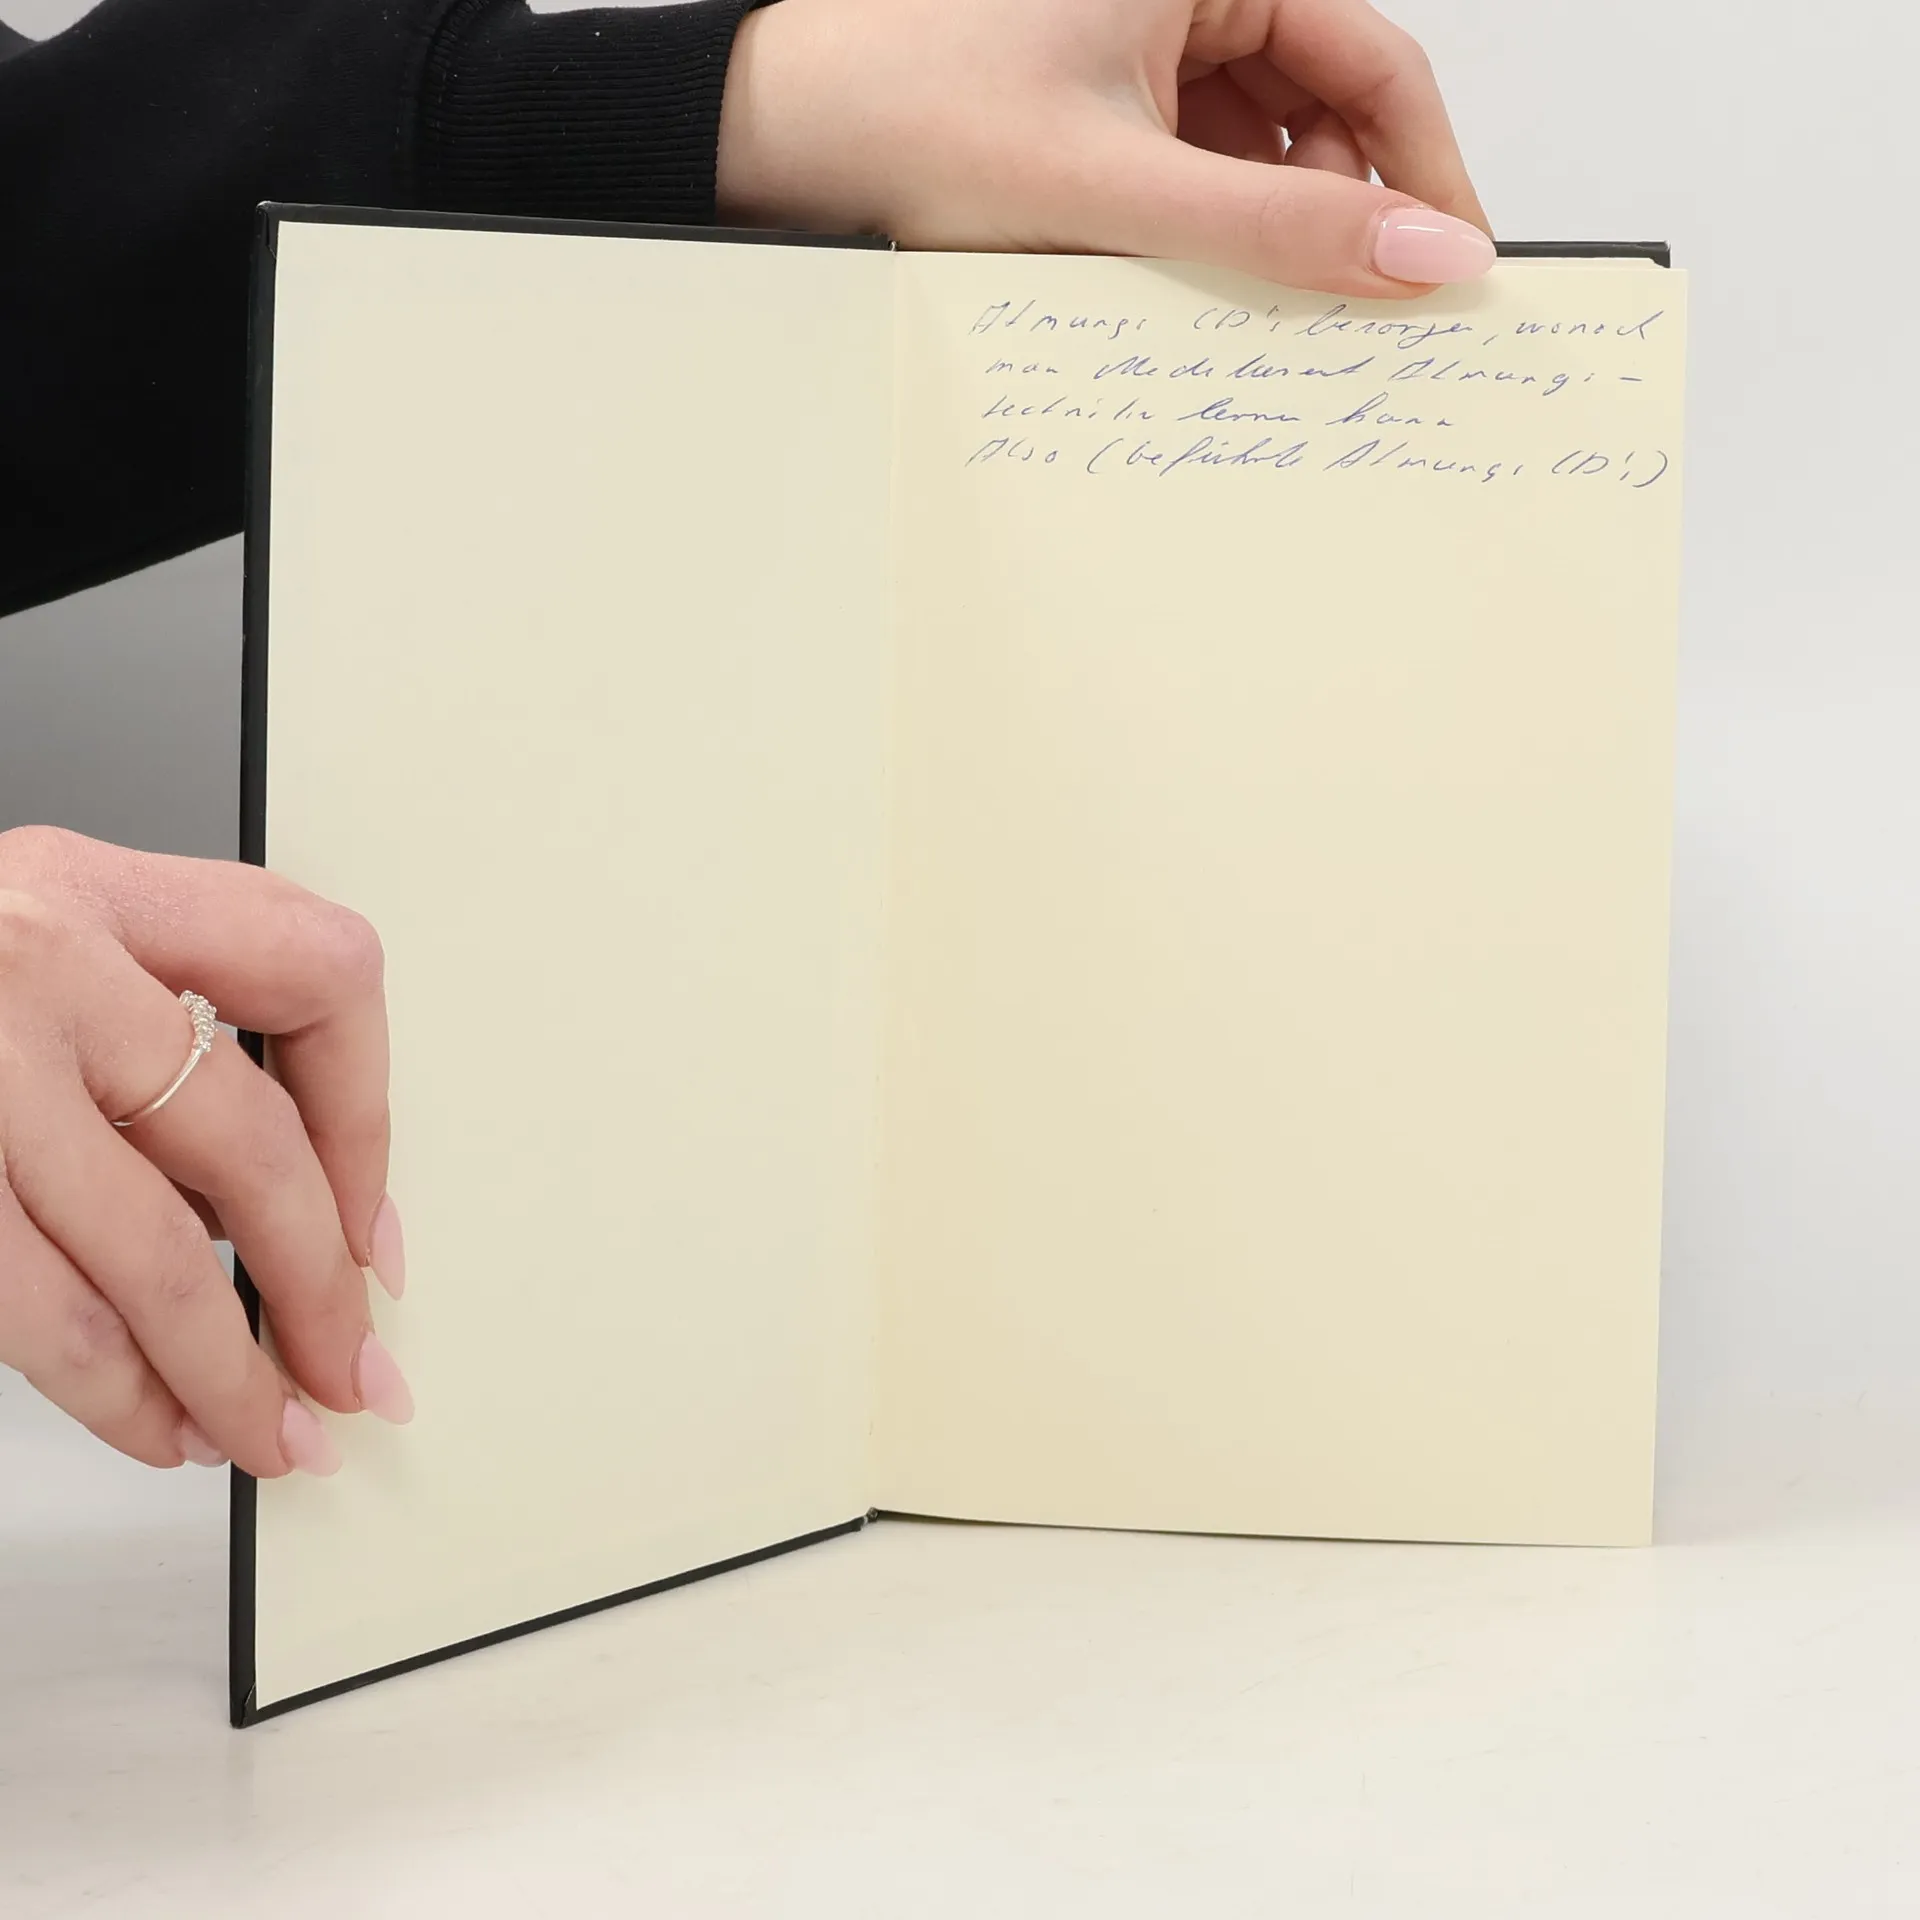 Atmungs CD's besorgen, wonach
man Medikament Atmungs-
technik lernen kann
Also (geführte Atmungs CD's)